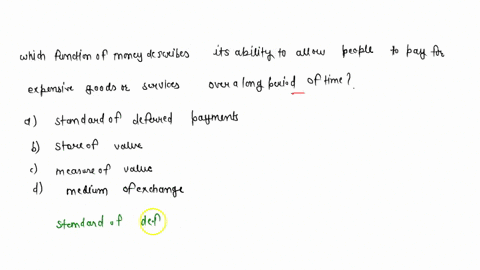 which function of money describes its ability to allow people to pay for
expensive goods or services over a long period of time?
a) standard of deferred payments
b) store of value
c) measure of value
d) medium of exchange
standard of def